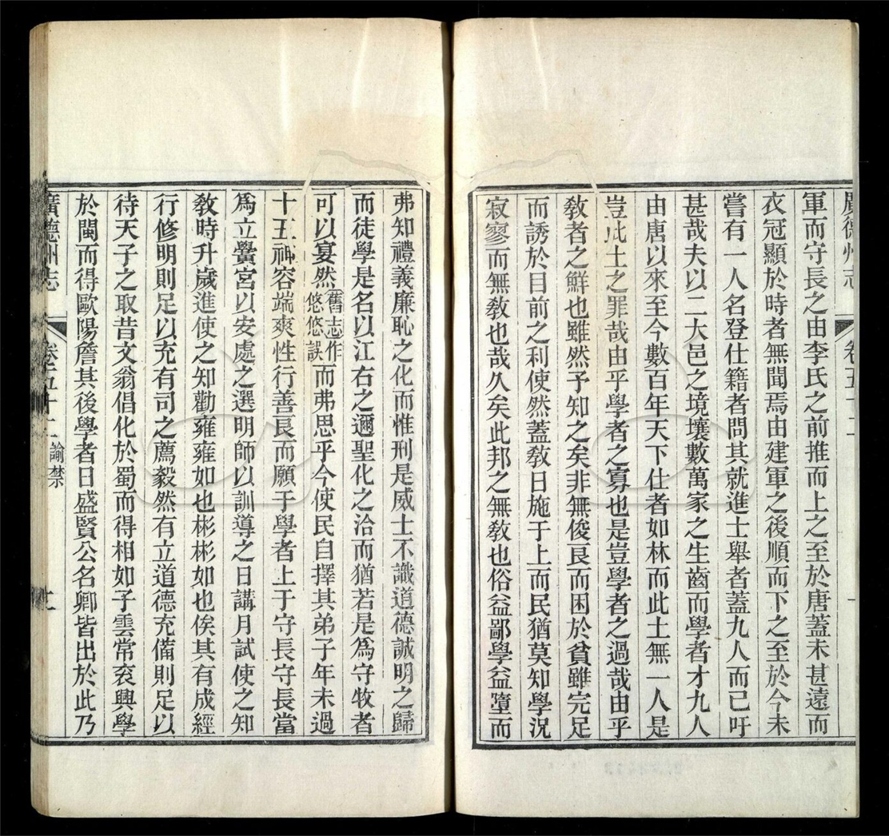 廣德州志
卷五十二
軍而守長之由李氏之前推而上之至於唐蓋未甚遠而
衣冠顯於時者無聞焉由建軍之後順而下之至於今未
嘗有一人名登仕籍者問其就進士舉者蓋九人而已吁
甚哉夫以二大邑之境壤數萬家之生齒而學者才九人
由唐以來至今數百年天下仕者如林而此土無一人是
豈此土之罪哉由乎學者之寡也是豈學者之過哉由乎
敎者之鮮也雖然予知之矣非無俊良而困於貧雖完足
而誘於目前之利使然蓋敎日施于上而民猶莫知學况
寂寥而無敎也哉久矣此邦之無敎也俗益鄙學益墮而
弗知禮義廉恥之化而惟刑是威士不識道德誠明之歸
而徒學是名以江右之邇聖化之洽而猶若是為守牧者
可以宴然舊志作悠悠誤而弗思乎今使民自擇其弟子年未過
十五神容端爽性行善良而願于學者上于守長守長當
爲立黌宮以安處之選明師以訓導之日講月試使之知
敎時升歲進使之知勸雍雍如也彬彬如也俟其有成經
行修明則足以充有司之薦毅然有立道德充備則足以
待天子之取昔文翁倡化於蜀而得相如子雲常衮興學
於閩而得歐陽詹其後學者日盛賢公名卿皆出於此乃
廣德州志
卷五十二
諭禁